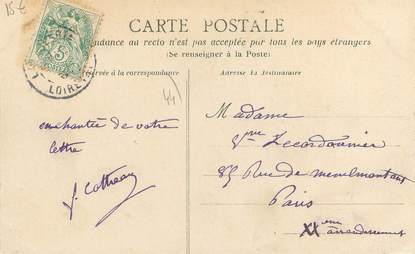 15 €
CARTE POSTALE
dance au recto n'est pas acceptée par tous les pays étrangers
(Se renseigner à la Poste)
ervée à la correspondance
Adresse du Destinataire
5
LOIRE
44
enchantée de votre
lettre
Madame
Vve Lecordonnier
85 Rue de menilmontant
Paris
XXeme
arrondissement